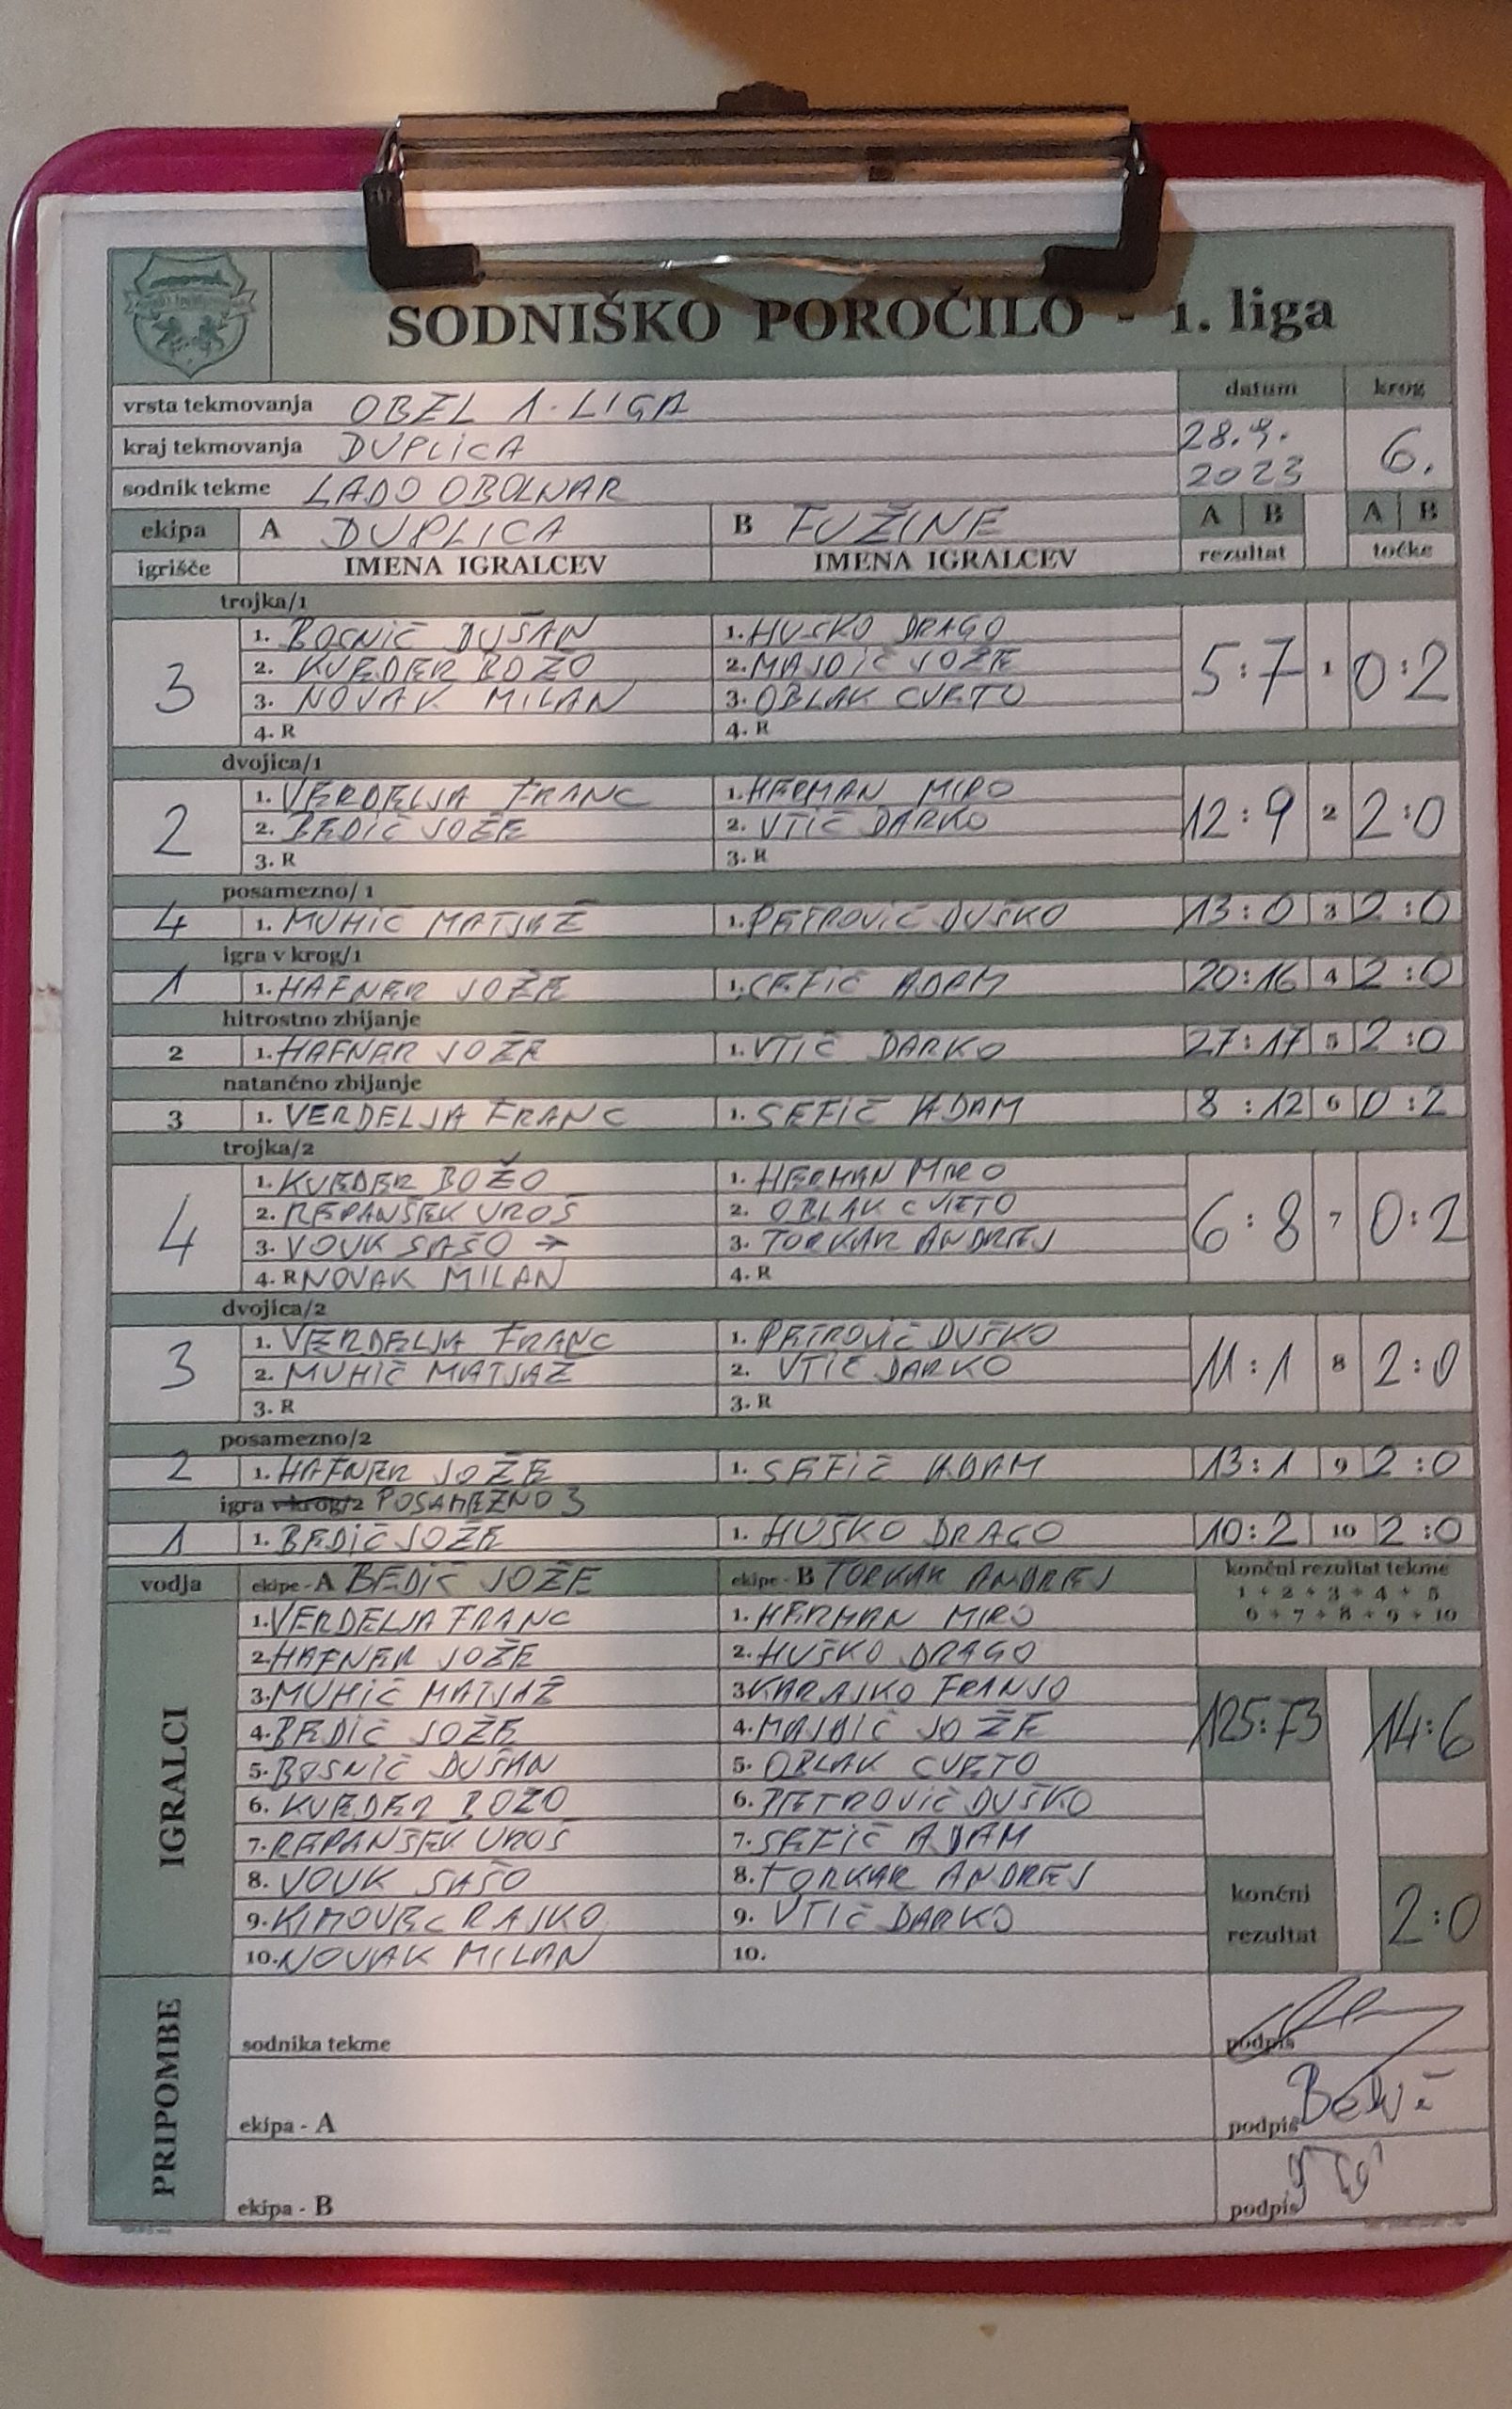 SODNIŠKO POROČILO - 1. liga
vrsta tekmovanja OBZL 1. LIGA
datum krog
kraj tekmovanja DUPLICA
28.9. 2023 6.
sodnik tekme LADO OBOLNAR
ekipa A DUPLICA B FUŽINE A B A B
igrišče IMENA IGRALCEV IMENA IGRALCEV rezultat točke
trojka/1
1. BOSNIČ DUŠAN 1. HUSKO DRAGO
3 2. KVEDER BOZO 2. MAJDIČ JOŽE 5:7 1 0:2
3. NOVAK MILAN 3. OBLAK CVETO
4. R 4. R
dvojica/1
1. VERDELJA FRANC 1. HERMAN MIRO
2 2. BEDIČ JOŽE 2. VTIČ DARKO 12:9 2 2:0
3. R 3. R
posamezno/1
4 1. MUHIČ MATJAŽ 1. PETROVIČ DUŠKO 13:0 3 2:0
igra v krog/1
1 1. HAFNER JOŽE 1. SEFIČ ADAM 20:16 4 2:0
hitrostno zbijanje
2 1. HAFNER JOŽE 1. VTIČ DARKO 27:17 5 2:0
natančno zbijanje
3 1. VERDELJA FRANC 1. SEFIČ ADAM 8:12 6 0:2
trojka/2
1. KVEDER BOŽO 1. HERMAN MIRO
2. REPANŠEK UROŠ 2. OBLAK CVETO
4 3. VOUK SAŠO → 3. TORKAR ANDREJ 6:8 7 0:2
4. R NOVAK MILAN 4. R
dvojica/2
1. VERDELJA FRANC 1. PETROVIČ DUŠKO
3 2. MUHIČ MATJAŽ 2. VTIČ DARKO 11:1 8 2:0
3. R 3. R
posamezno/2
2 1. HAFNER JOŽE 1. SEFIČ ADAM 13:1 9 2:0
igra v krog/2 POSAMEZNO 3
1 1. BEDIČ JOŽE 1. HUŠKO DRAGO 10:2 10 2:0
vodja ekipe - A BEDIČ JOŽE ekipe - B TORKAR ANDREJ končni rezultat tekme
1 + 2 + 3 + 4 + 5
6 + 7 + 8 + 9 + 10
IGRALCI
1. VERDELJA FRANC 1. HERMAN MIRO
2. HAFNER JOŽE 2. HUŠKO DRAGO
3. MUHIČ MATJAŽ 3. KARAJKO FRANJO
4. BEDIČ JOŽE 4. MAJDIČ JOŽE 125:73 14:6
5. BOSNIČ DUŠAN 5. OBLAK CVETO
6. KVEDER BOZO 6. PETROVIČ DUŠKO
7. REPANŠEK UROŠ 7. SEFIČ ADAM
8. VOUK SAŠO 8. TORKAR ANDREJ
9. KIMOVEC RAJKO 9. VTIČ DARKO
10. NOVAK MILAN 10.
končni rezultat 2:0
PRIPOMBE
sodnika tekme podpis
ekipa - A podpis Bedič
ekipa - B podpis